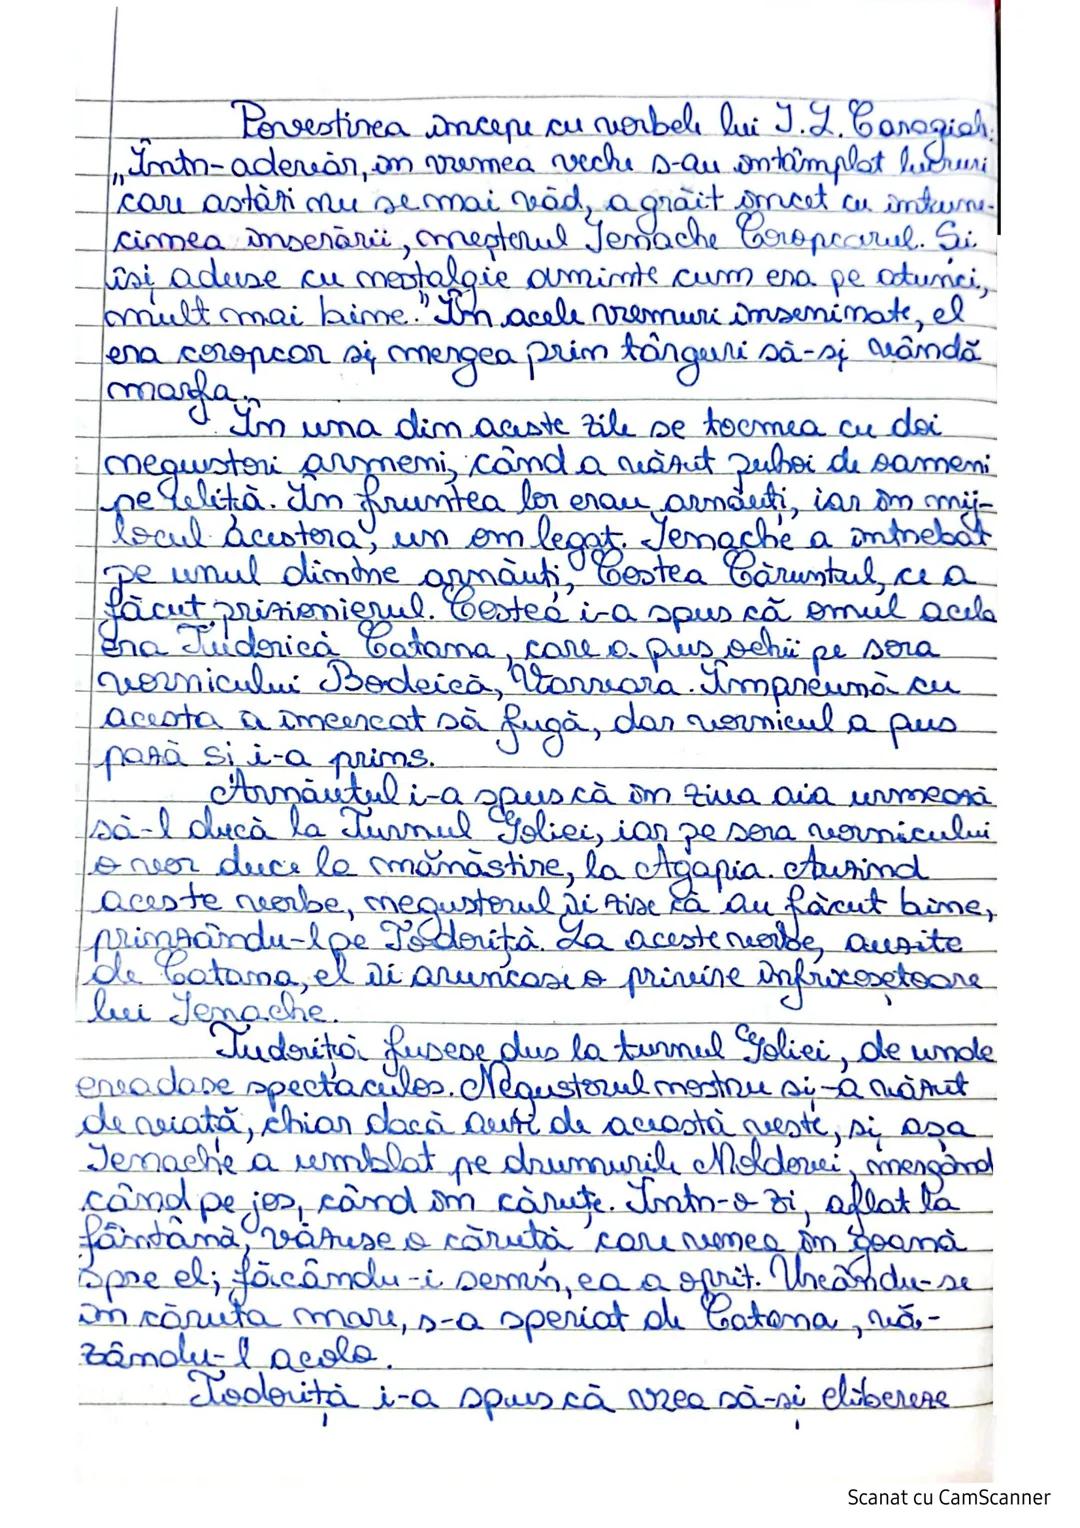 Povestirea începe cu vorbele lui I. L. Caragiale.
„Într-adevăr, în vremea veche s-au întâmplat lucruri
care astăzi nu se mai văd, a grăit încet cu întune-
cimea înserării, meșterul Ienache Coropcarul. Si
își aduse cu nostalgie aminte cum era pe atunci,
mult mai bine." În acele vremuri înseninate, el
era coropcar și mergea prin târguri să-și vândă
marfa.
În una din aceste zile se tocmea cu doi
negustori armeni, când a văzut puhoi de oameni
pe uliță. În fruntea lor erau arnăuți, iar în mij-
locul acestora, un om legat. Ienache a întrebat
pe unul dintre arnăuți, Costea Căruntul, ce a
făcut prizionierul. Costea i-a spus că omul acela
era Tudorică Catana, care a pus ochii pe sora
vornicului Bodeică, Varvara. Împreună cu
aceasta a încercat să fugă, dar vornicul a pus
pază si i-a prins.
Arnăutul i-a spus că în ziua aia urmează
să-l ducă la Turnul Goliei, iar pe sora vornicului
o vor duce la mănăstire, la Agapia. Auzind
aceste vorbe, negustorul îi zise că au făcut bine,
prinzându-l pe Todoriță. La aceste vorbe, auzite
de Catana, el îi aruncase o privire înfricoșetoare
lui Ienache.
Tudoriță fusese dus la turnul Goliei, de unde
evadase spectaculos. Negustorul nostru și-a văzut
de viață, chiar dacă auzi de această veste, și așa
Ienache a umblat pe drumurile Moldovei, mergând
când pe jos, când în căruțe. Într-o zi, aflat la
fântână, văzuse o căruță care venea în goană
spre el; făcându-i semn, ea a oprit. Urcându-se
în căruța mare, s-a speriat de Catana, vă-
zându-l acolo.
Todoriță i-a spus că vrea să-și elibereze
Scanat cu CamScanner